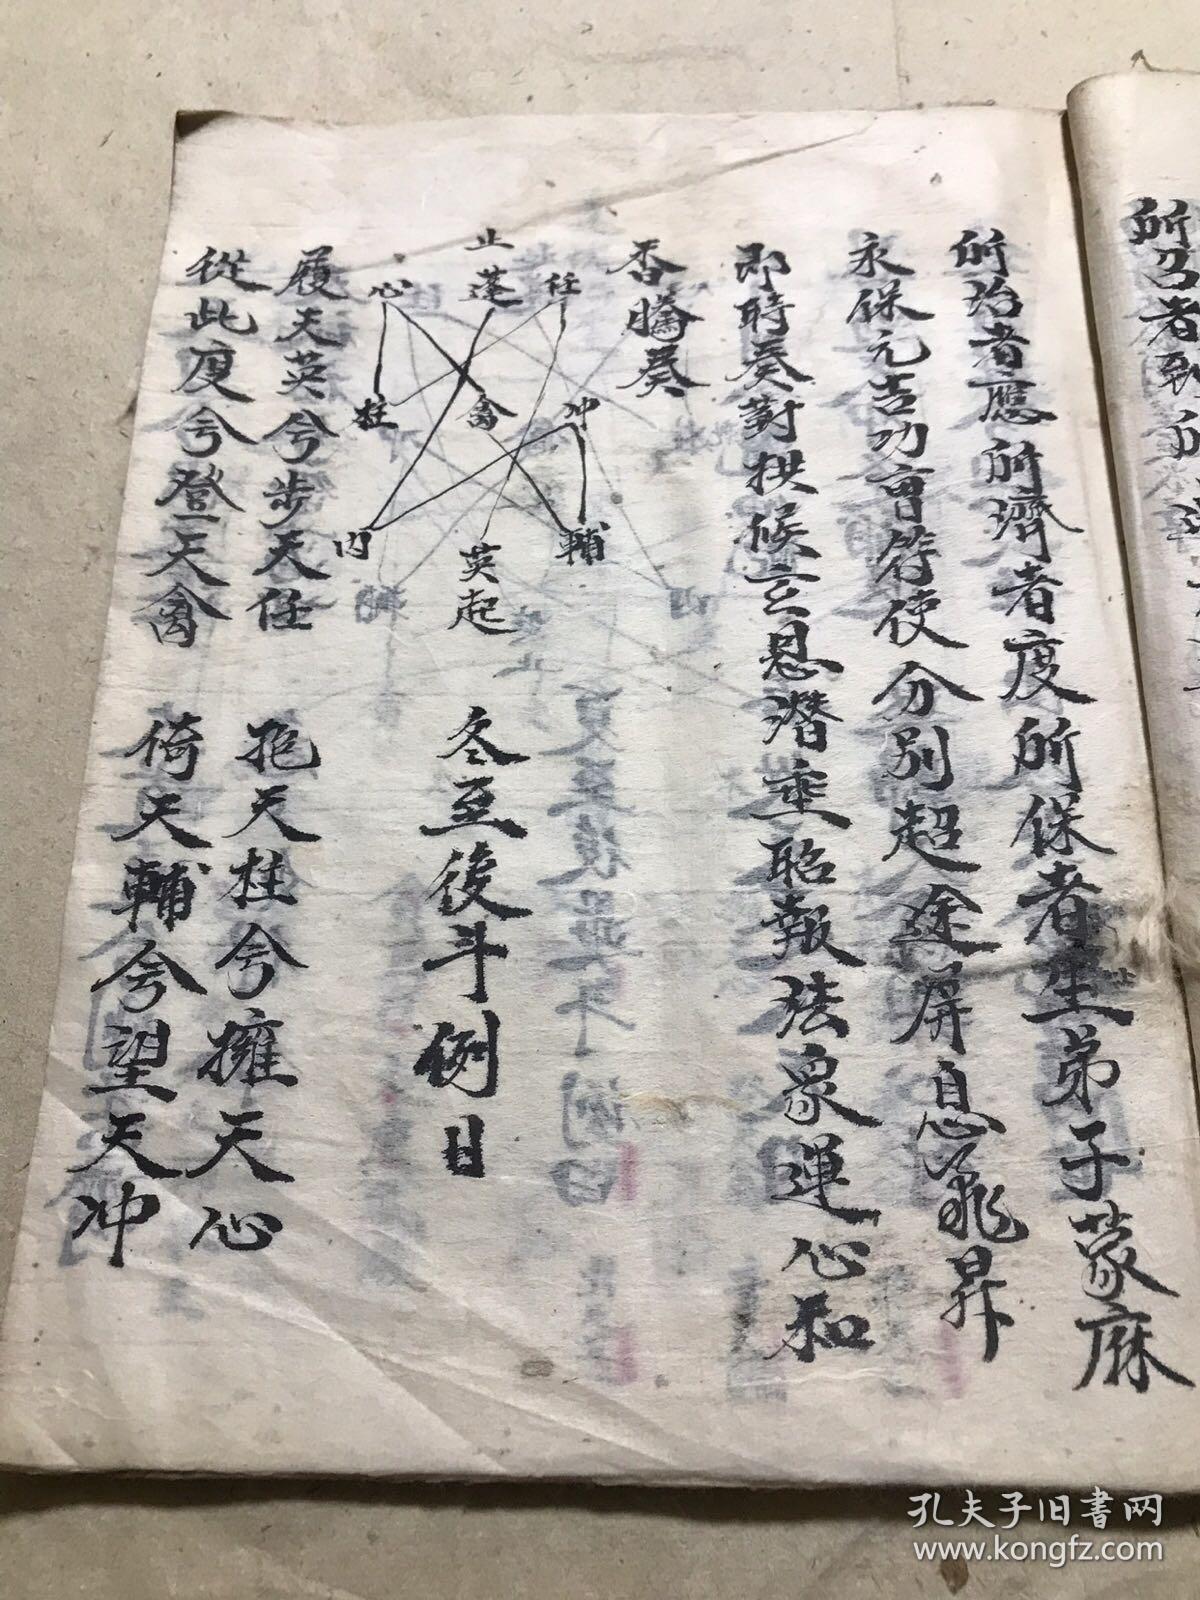 所治者應所濟者度所保者生弟子蒙庥
永保元吉功曹符使分別超途屏息飛昇
即時奏對拱候玄恩潛垂昭報法象運心和
香騰奏
止
心 蓬 任
柱 禽 冲
内 英起 輔
冬至後斗例日
履天英兮步天任 抱天柱兮擁天心
從此度兮登天禽 倚天輔兮望天冲
孔夫子旧书网
www.kongfz.com